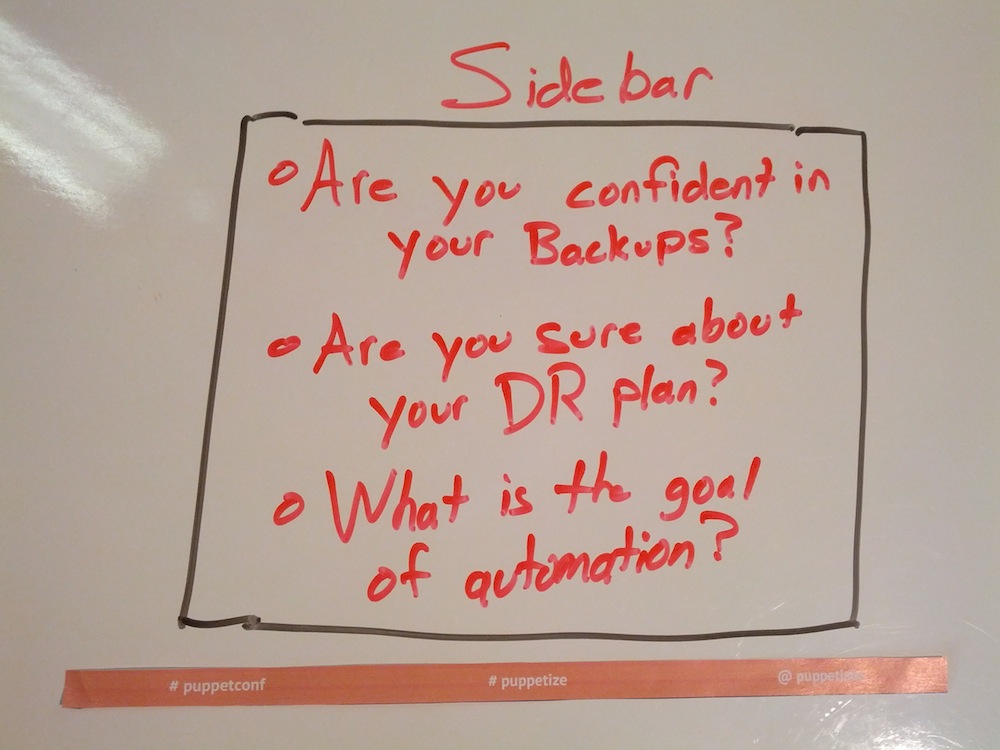 Sidebar
Are you confident in
your Backups?
Are you sure about
your DR plan?
What is the goal
of automation?
# puppetconf # puppetize